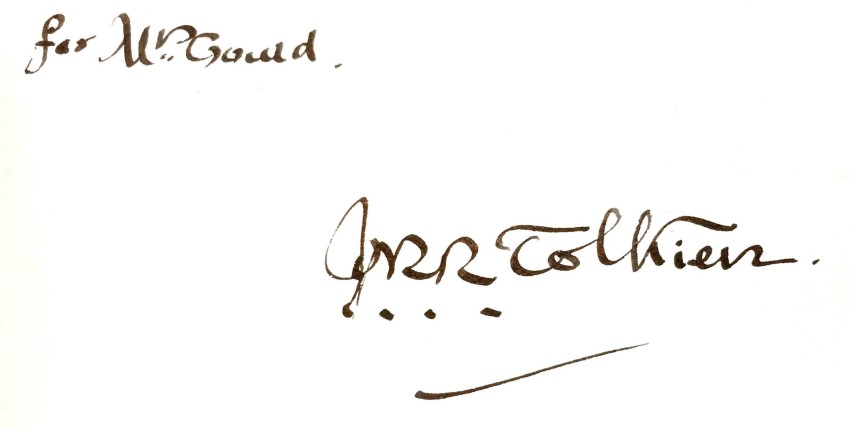 for Mr. Gould.
JRR Tolkien.